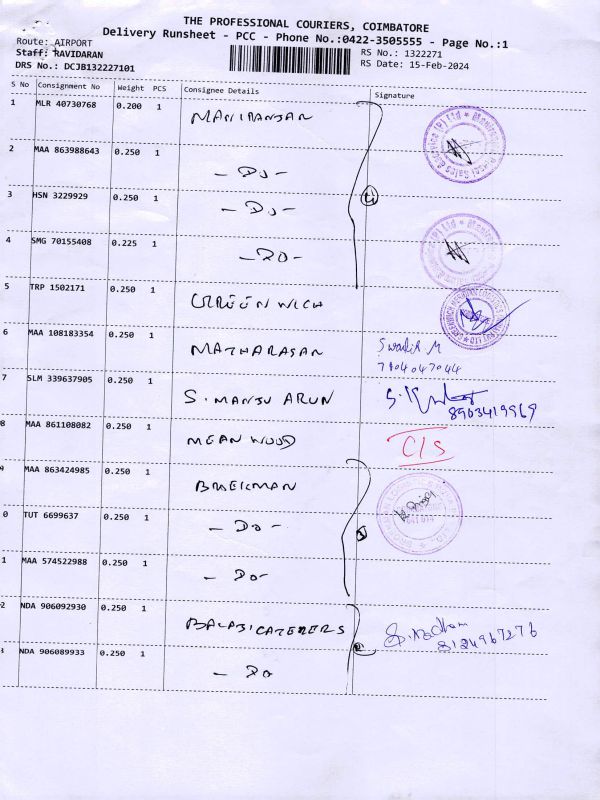 THE PROFESSIONAL COURIERS, COIMBATORE
Delivery Runsheet - PCC - Phone No.:0422-3505555 - Page No.:1
Route: AIRPORT
Staff: RAVIDARAN
RS No.: 1322271
DRS No.: DCJB132227101
RS Date: 15-Feb-2024
S No Consignment No Weight PCS Consignee Details Signature
1 MLR 40730768 0.200 1 MANIRANJAN
2 MAA 863988643 0.250 1 - DO -
3 HSN 3229929 0.250 1 - DO -
4 SMG 70155408 0.225 1 - DO -
5 TRP 1502171 0.250 1 GREENWICH
6 MAA 108183354 0.250 1 MATHARASAN
7904047044
7 SLM 339637905 0.250 1 S. MANJU ARUN
8903419969
8 MAA 861108082 0.250 1 MEAN WOOD C/S
9 MAA 863424985 0.250 1
0 TUT 6699637 0.250 1 - DO -
1 MAA 574522988 0.250 1 - DO -
2 NDA 906092930 0.250 1 BALAJI CATERERS
8124967276
3 NDA 906089933 0.250 1 - DO